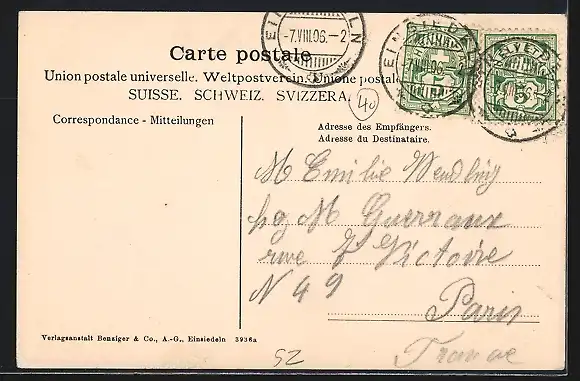 EINSIEDELN
-7.VIII.06.-2
Carte postale
Union postale universelle. Weltpostverein. Unione postale
SUISSE. SCHWEIZ. SVIZZERA.
40
EINSIEDELN
HELVETIA
5
Correspondance - Mitteilungen
Adresse des Empfängers.
Adresse du Destinataire.
M Emilie Wendling
M Guerraux
rue Victoire
N 49
Paris
France
Verlagsanstalt Benziger & Co., A.-G., Einsiedeln 3936a
SZ